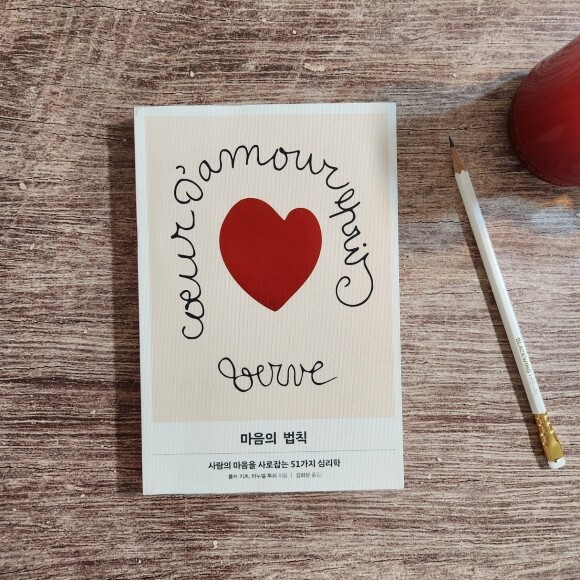 coeur D'amour esprit
verve
마음의 법칙
사람의 마음을 사로잡는 51가지 심리학
폴커 키츠, 마누엘 투쉬 지음 | 김희상 옮김
BLACKWING